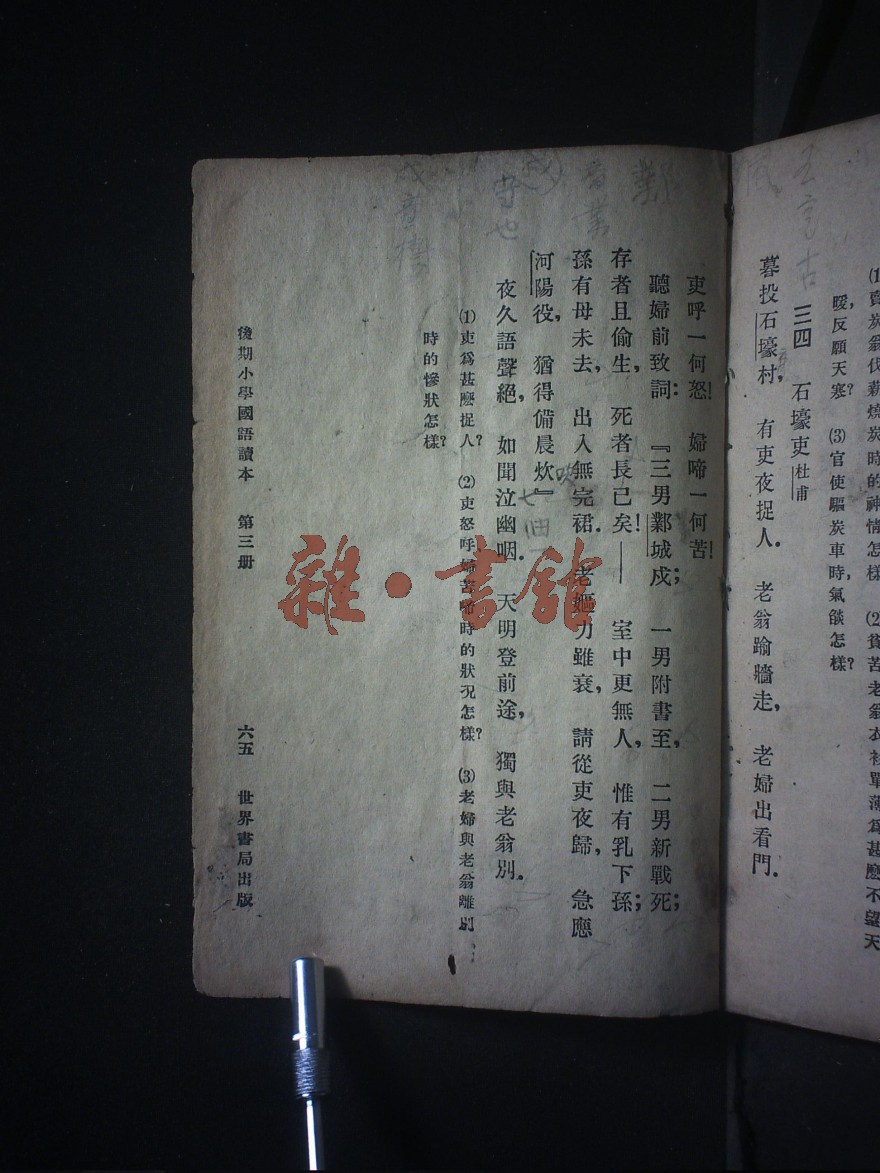 ⑴賣炭翁伐薪燒炭時的神情怎樣　⑵貧苦老翁衣衫單薄爲甚麽不望天
暖,反願天寒?　⑶官使驅炭車時,氣燄怎樣?
三四　石壕吏杜甫
暮投石壕村,　有吏夜捉人.　老翁踰牆走,　老婦出看門.
吏呼一何怒!　婦啼一何苦!
聽婦前致詞:　『三男鄴城戍;　一男附書至,　二男新戰死;
存者且偷生,　死者長已矣!——　室中更無人,　惟有乳下孫;
孫有母未去,　出入無完裙.　老嫗力雖衰,　請從吏夜歸,　急應
河陽役,　猶得備晨炊』
夜久語聲絕,　如聞泣幽咽.　天明登前途,　獨與老翁別.
⑴吏爲甚麽捉人?　⑵吏怒呼婦苦啼時的狀況怎樣?　⑶老婦與老翁離別
時的慘狀怎樣?
後期小學國語讀本　第三册　六五　世界書局出版
鄴
雜·書館